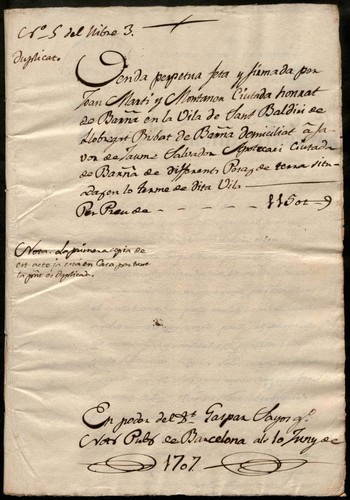 Nº. 5 del llibre 3.
Duplicat.
Venda perpetua feta y firmada por
Joan Marti y Montaner Ciutadà honrat
de Barñã en la Vila de Sant Baldiri de
Llobregat Bisbat de Barñã domiciliat à fa-
vor de Jaume Salvador Apotecari Ciutadà
de Barñã de differents Pesas de terra situ-
adas en lo terme de dita Vila
Per Preu de 1150 ll
Nota. La primera copia de
est acte ja està en Casa, per tant
la pnt es duplicada.
En poder del Dt. Gaspar Sayós
Notº Pubº de Barcelona als 10 Juny de
1707